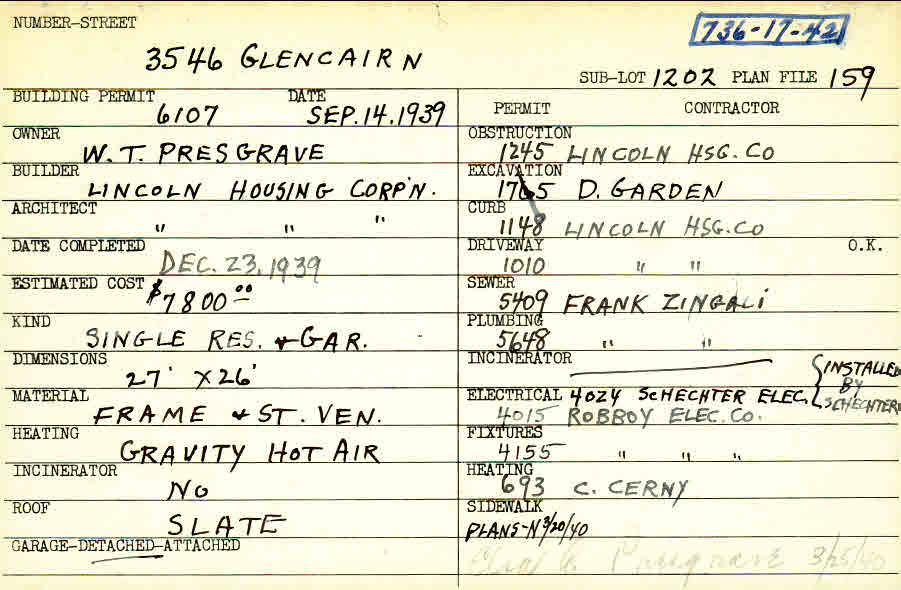 NUMBER-STREET
736-17-42
3546 GLENCAIRN
SUB-LOT 1202 PLAN FILE 159
BUILDING PERMIT DATE
6107 SEP. 14. 1939
OWNER
W. T. PRESGRAVE
BUILDER
LINCOLN HOUSING CORP'N.
ARCHITECT
" " "
DATE COMPLETED
DEC. 23, 1939
ESTIMATED COST
$7800.00
KIND
SINGLE RES. & GAR.
DIMENSIONS
27' X 26'
MATERIAL
FRAME & ST. VEN.
HEATING
GRAVITY HOT AIR
INCINERATOR
NO
ROOF
SLATE
GARAGE-DETACHED-ATTACHED
PERMIT CONTRACTOR
OBSTRUCTION
1245 LINCOLN HSG. CO
EXCAVATION
1765 D. GARDEN
CURB
1148 LINCOLN HSG. CO
DRIVEWAY O.K.
1010 " "
SEWER
5409 FRANK ZINGALI
PLUMBING
5648 " "
INCINERATOR
ELECTRICAL 4024 SCHECHTER ELEC.
4015 ROBROY ELEC. CO.
INSTALLED
BY
SCHECHTER
FIXTURES
4155 " " "
HEATING
693 C. CERNY
SIDEWALK
PLANS-N 3/20/40
3/25/40